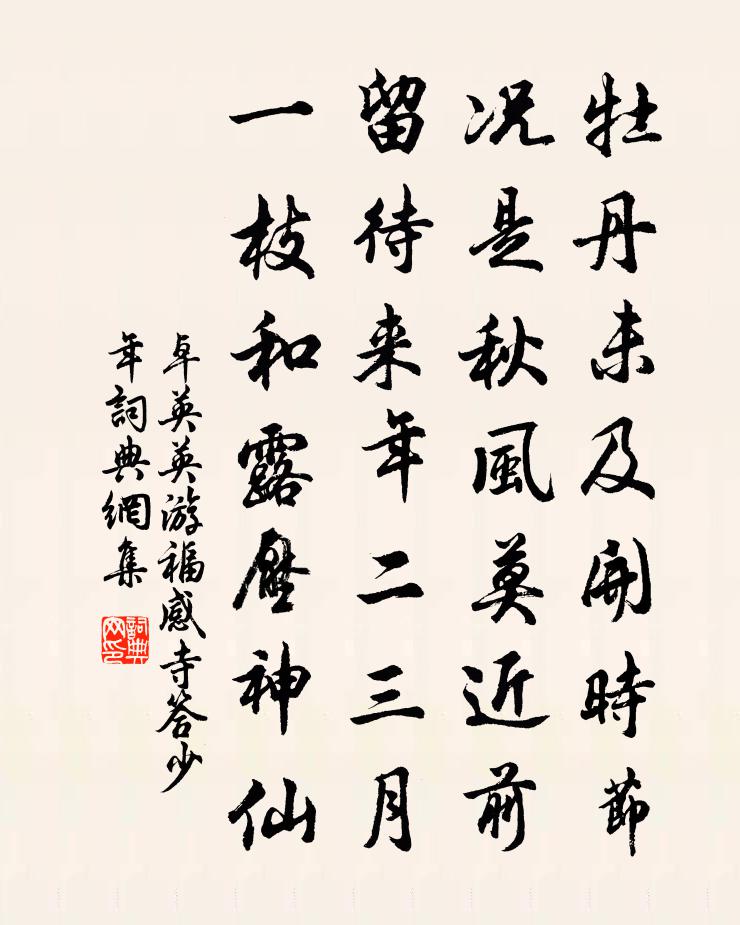 牡丹未及開時節
况是秋風莫近前
留待来年二三月
一枝和露壓神仙
卓英英游福感寺答少
年詞典網集
詞典网印